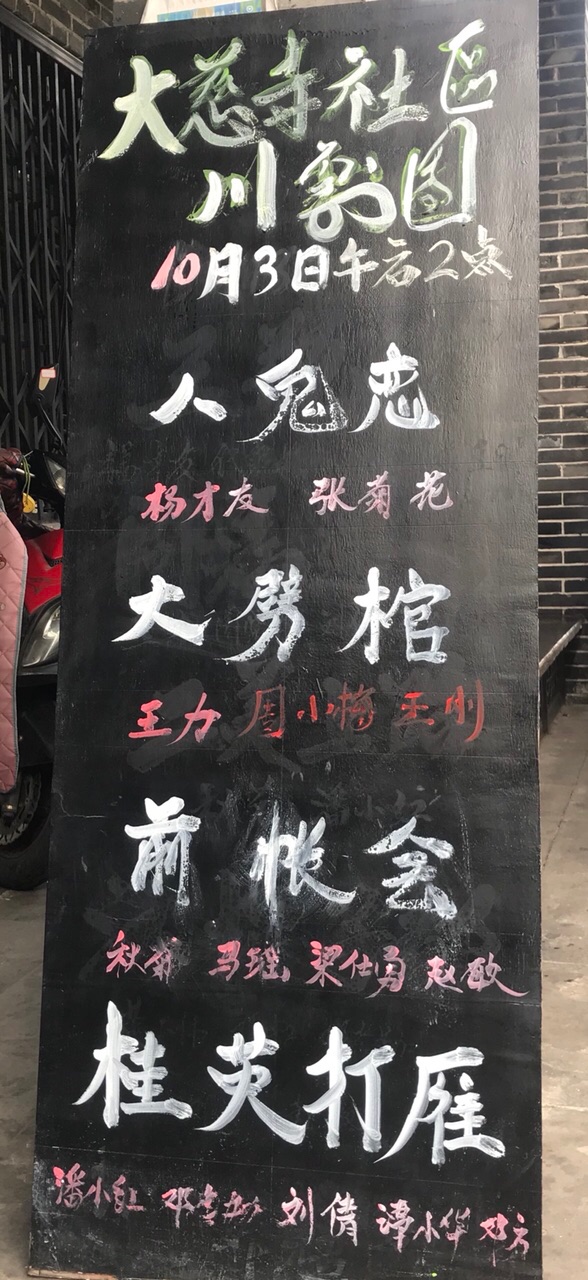 大慈寺社區
川剧团
10月3日午后2点
人鬼恋
杨才友 张菊花
大劈棺
王力 周小梅 王刚
前帐会
秋菊 马瑶 梁仕勇 赵敏
桂英打雁
潘小红 刘倩 谭小华